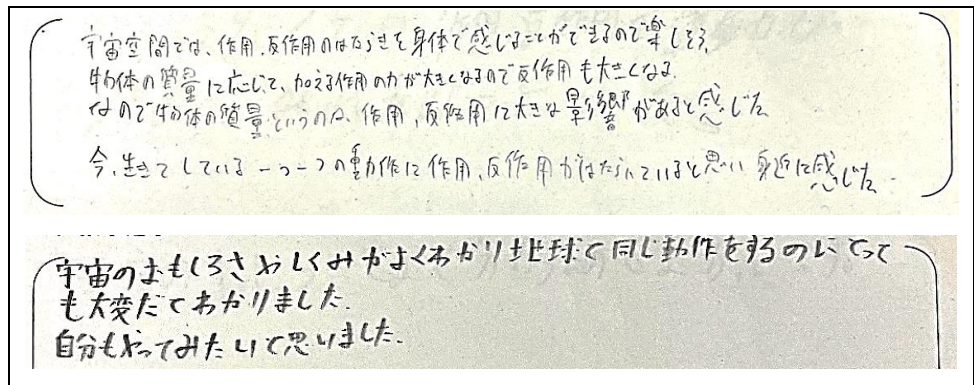 宇宙空間では、作用、反作用のはたらきを身体で感じることができるので楽しそう。
物体の質量に応じて、加える作用の力が大きくなるので反作用も大きくなる。
なので物体の質量というのは、作用、反作用に大きな影響があると感じた
今、生きてしている一つ一つの動作に作用、反作用がはたらいていると思い身近に感じた.
宇宙のおもしろさやしくみがよくわかり地球で同じ動作をするのにとって
も大変だとわかりました.
自分もやってみたいと思いました.